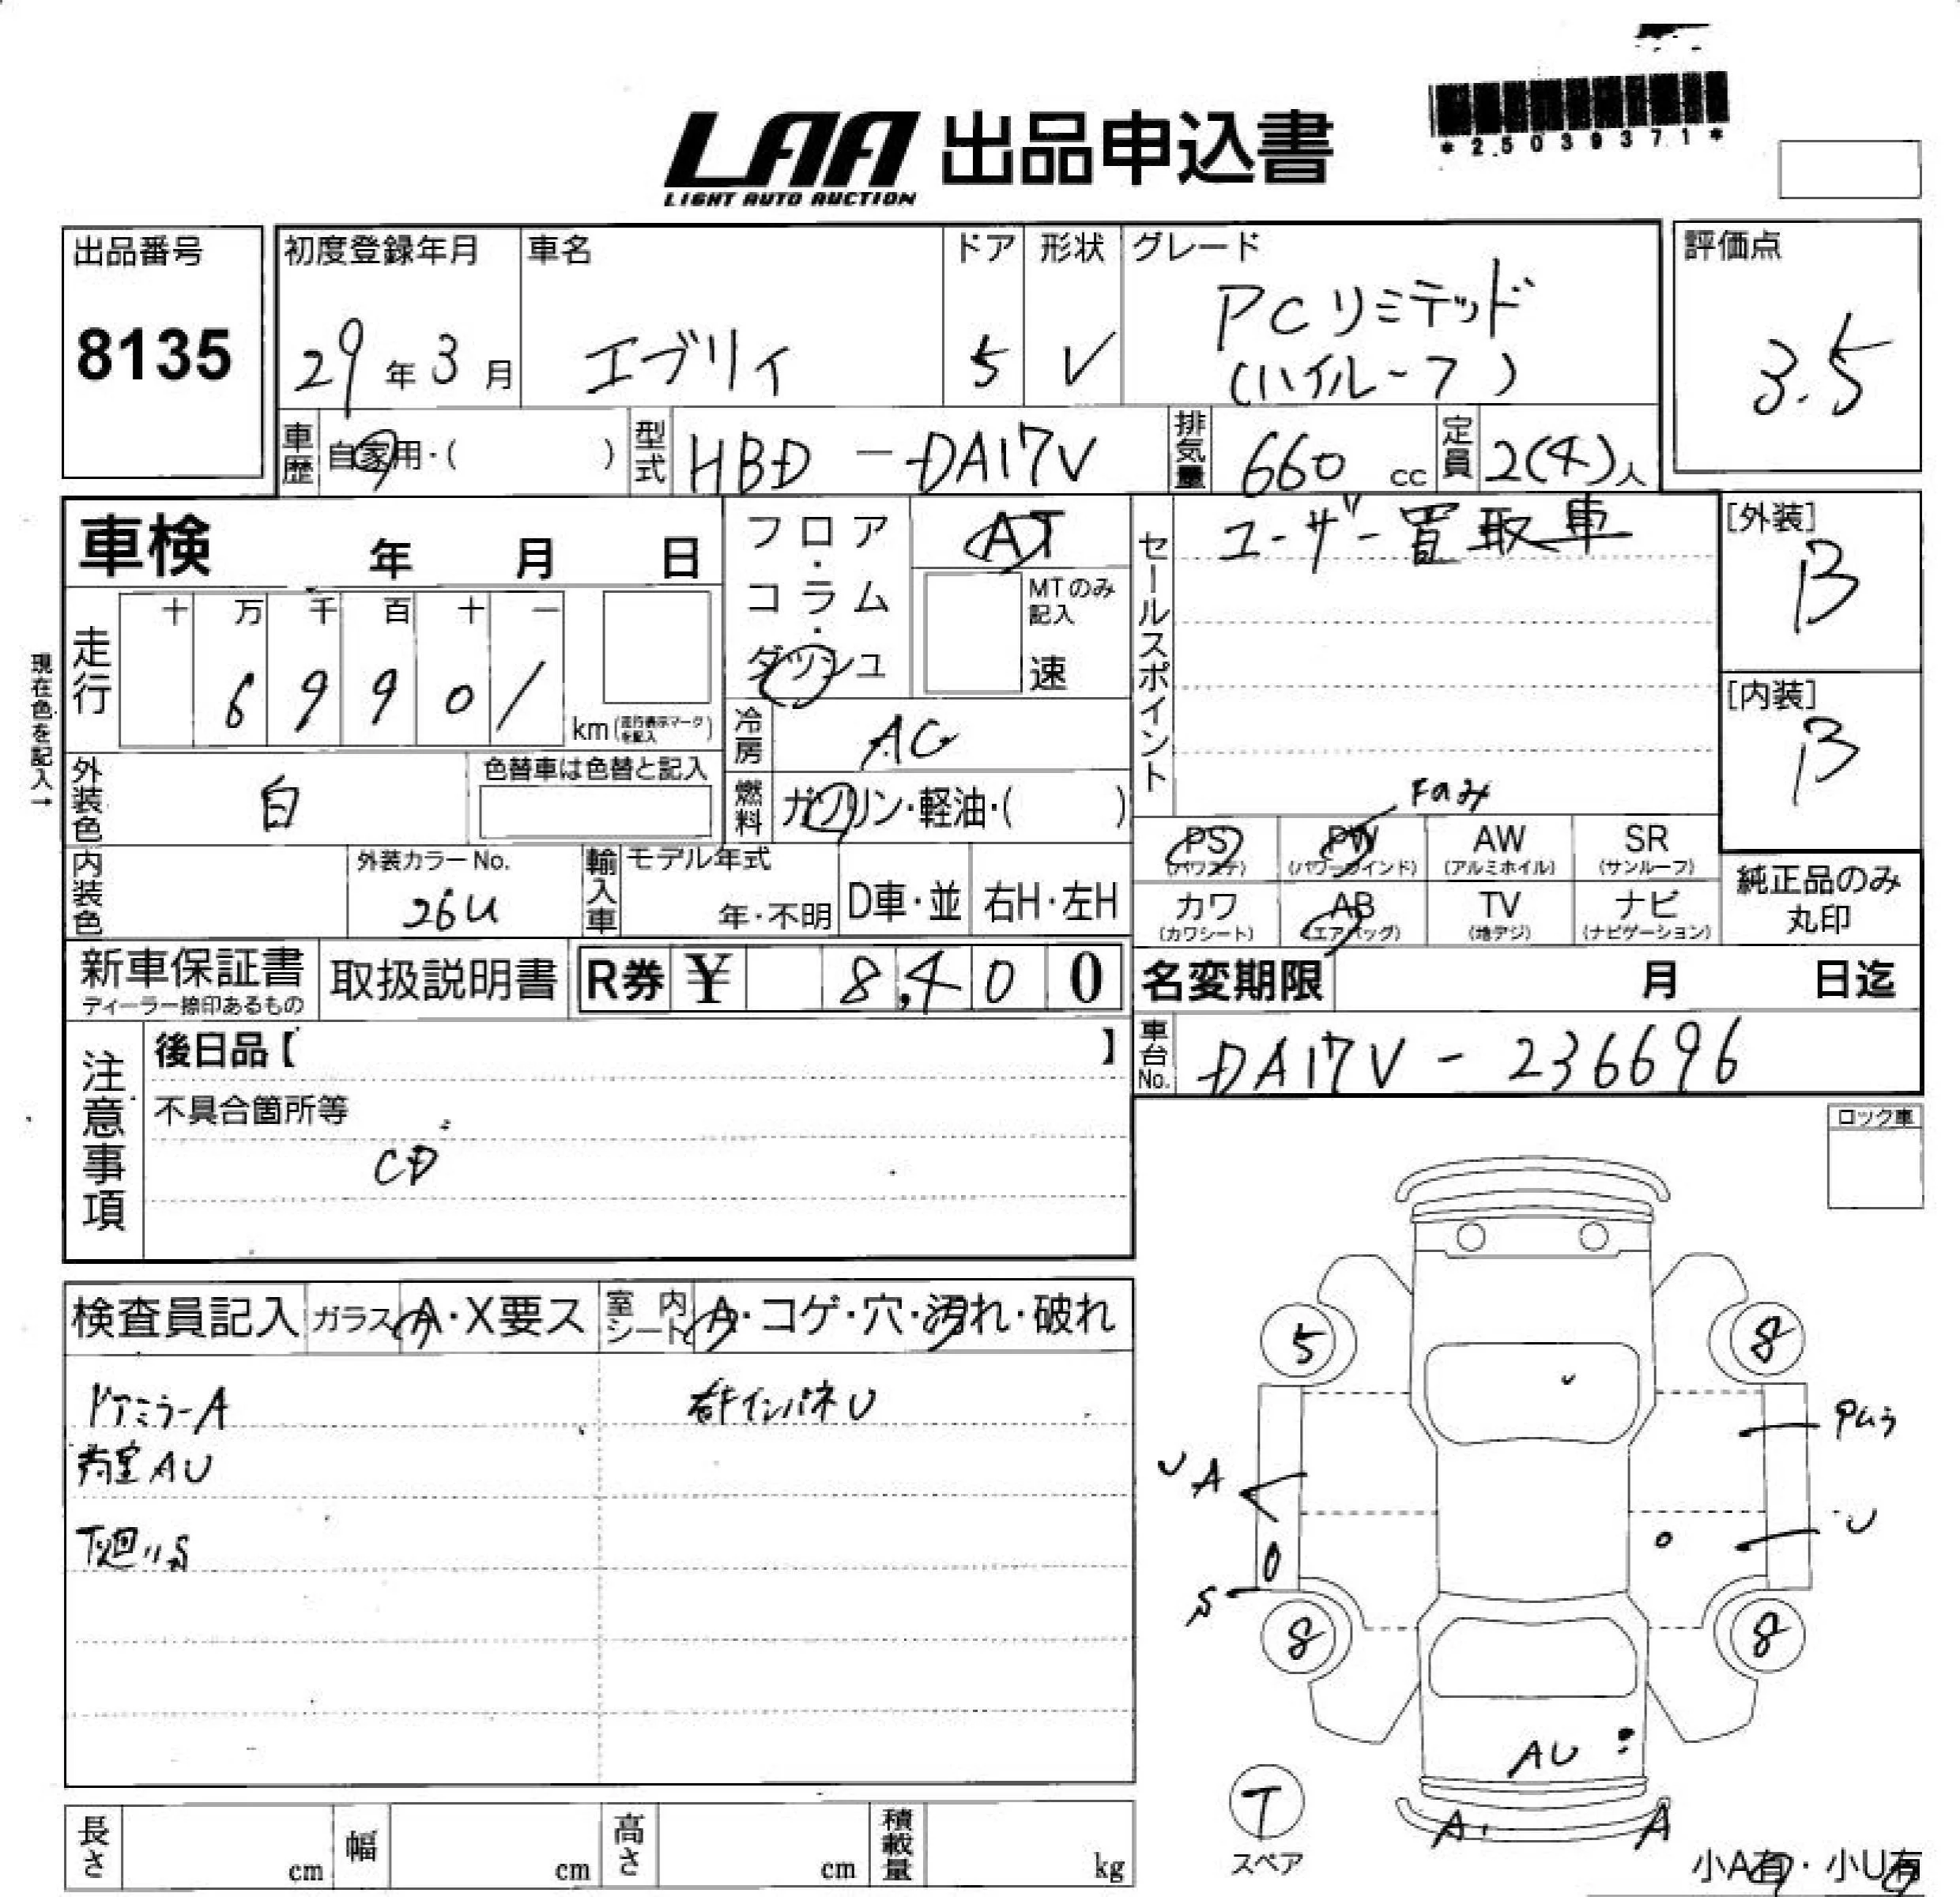 LAA 出品申込書
LIGHT AUTO AUCTION
*25039371*
出品番号
8135
初度登録年月
29年3月
車名
エブリイ
ドア
5
形状
V
グレード
PCリミテッド
(ハイルーフ)
評価点
3.5
車歴
自家用・( )
型式
HBD-DA17V
排気量
660 cc
定員
2(4)人
車検 年 月 日
フロア・コラム・ダッシュ
AT
MTのみ記入
速
セールスポイント
ユーザー買取車
[外装]
B
[内装]
B
現在色を記入→
走行
十 万 千 百 十 一
6 9 9 0 1
km(走行表示マークを記入)
冷房
AC
外装色
白
色替車は色替と記入
燃料
ガソリン・軽油・( )
Faみ
PS (パワステ)
PW (パワーウインド)
AW (アルミホイル)
SR (サンルーフ)
カワ (カワシート)
AB (エアバッグ)
TV (地デジ)
ナビ (ナビゲーション)
純正品のみ丸印
内装色
外装カラーNo.
26U
輸入車
モデル年式
年・不明
D車・並
右H・左H
新車保証書
ディーラー捺印あるもの
取扱説明書
R券 ¥ 8,400
名変期限 月 日迄
車台No.
DA17V-236696
注意事項
後日品【 】
不具合箇所等
CD
ロック車
検査員記入
ガラス A・X要ス
室内シート A・コゲ・穴・汚れ・破れ
ドアミラーA
インパネU
荷室AU
下廻りS
5
8
U A
U
S
8
8
AU
T
スペア
A
A
小A有・小U有
長さ cm
幅 cm
高さ cm
積載量 kg